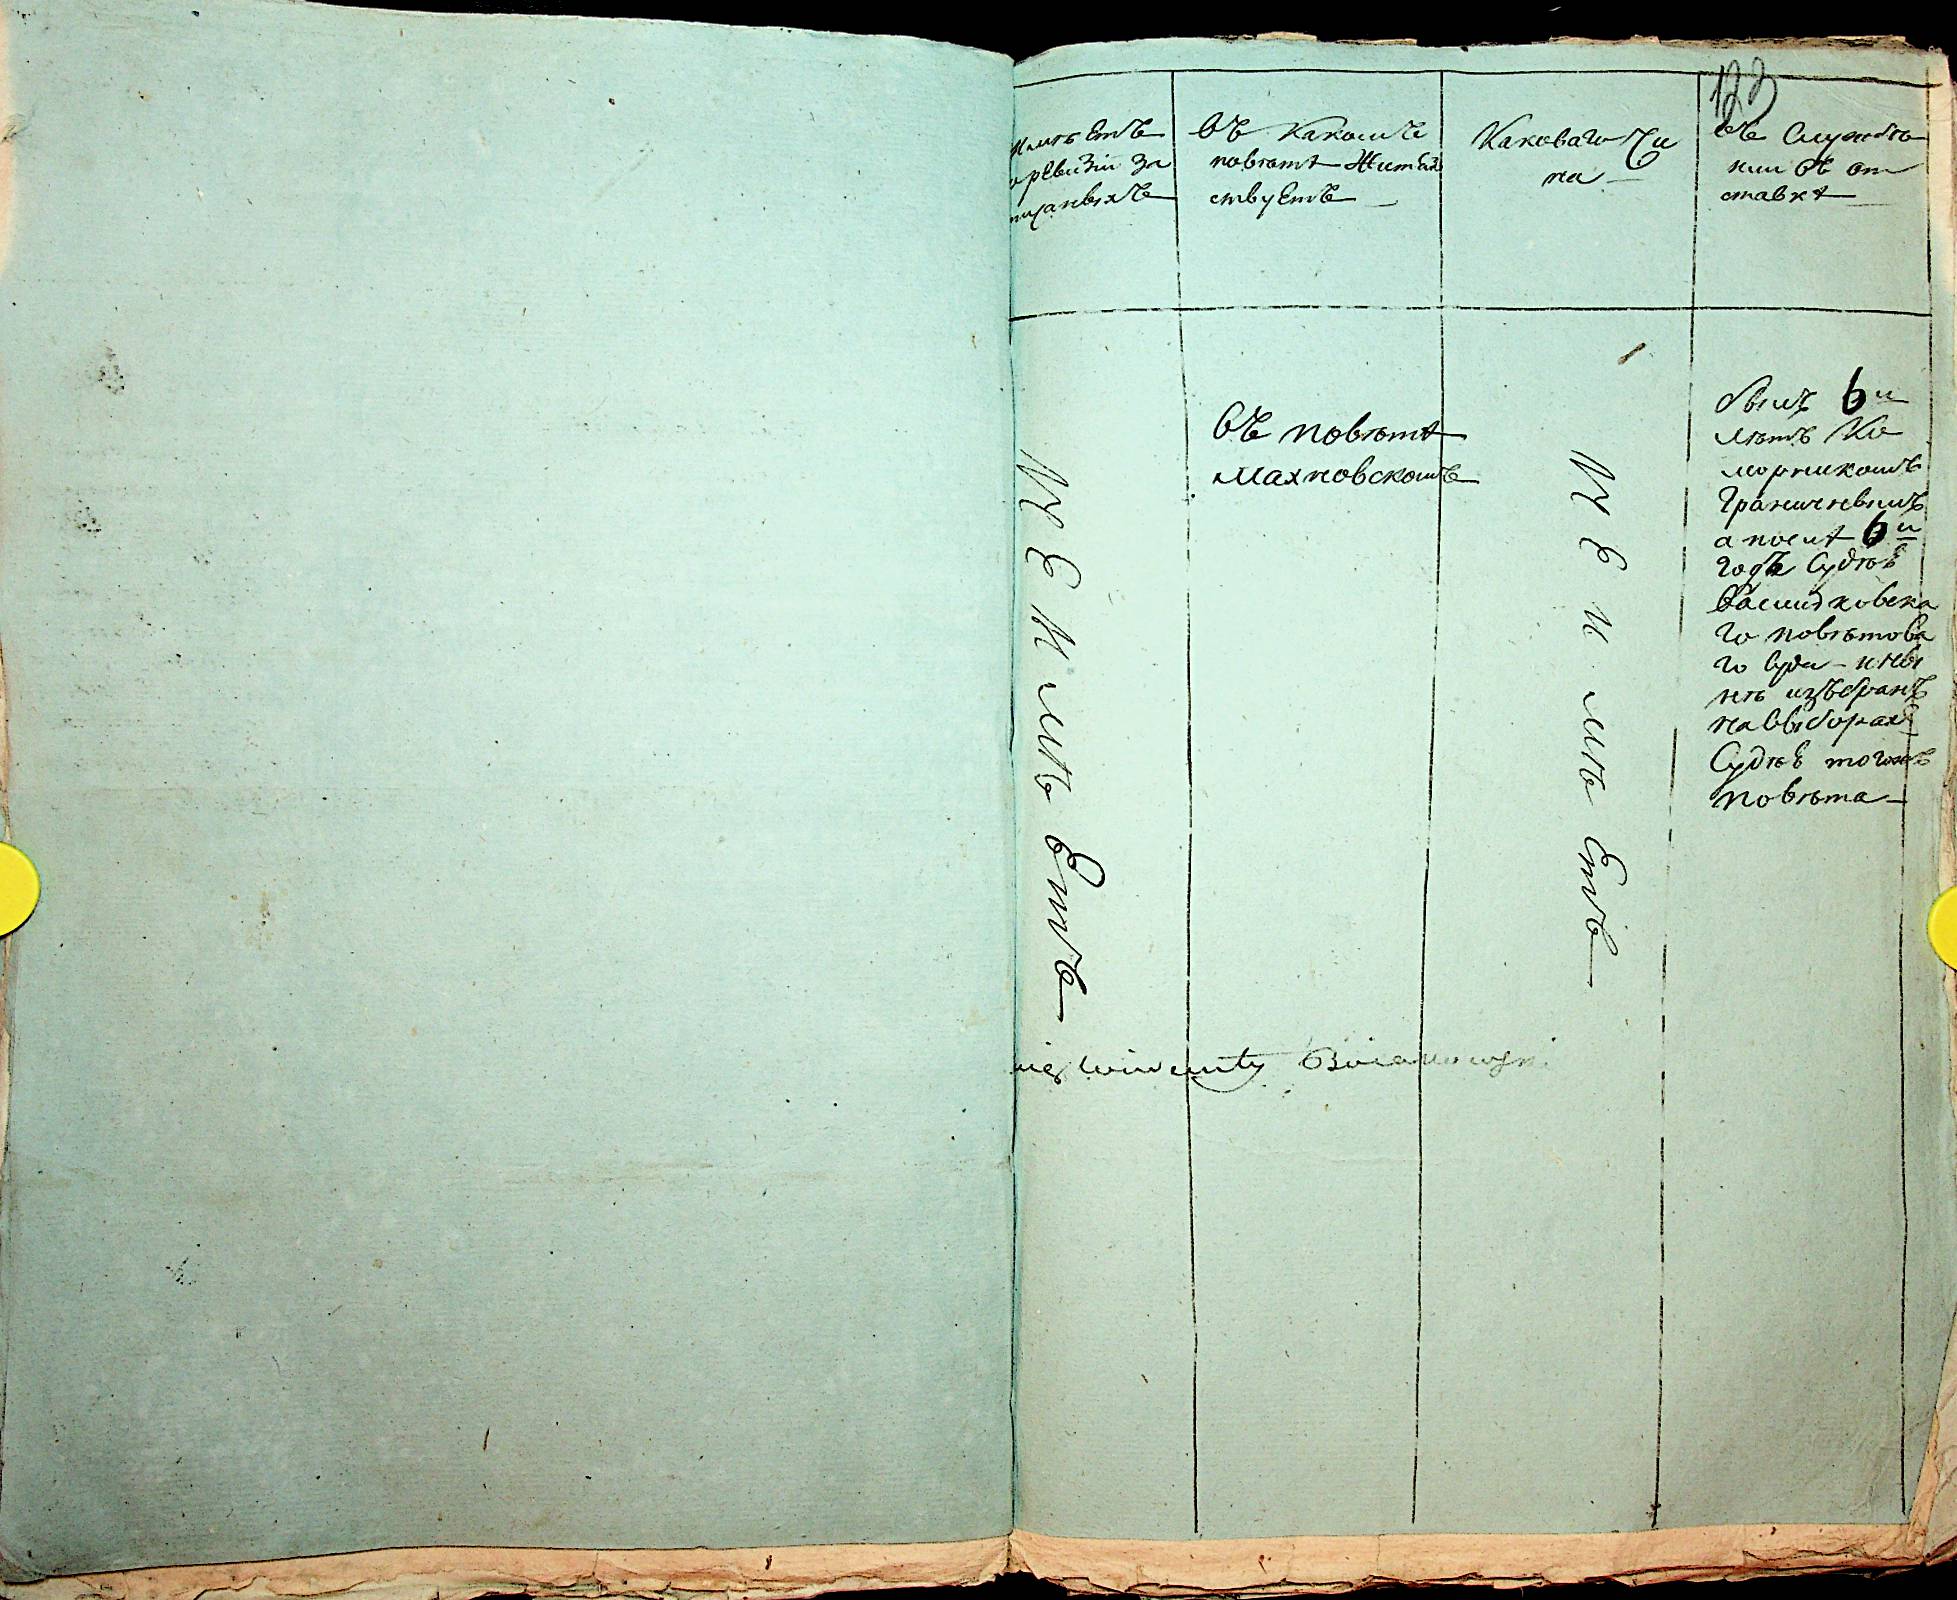 123
имѣетъ
оревизiи за
писанныхъ
въ какомъ
повѣтѣ жител
ствуетъ
Каковаго Чи
на
въ службѣ
или въ от
ставкѣ
НЕ имѣ Етъ
въ повѣтѣ
Махновскомъ
НЕ имѣ Етъ
былъ 6 и
лѣтъ Ко
морникомъ
Граничнымъ
а послѣ 6 и
годъ Судьѣ
Василковска
го повѣтова
го Суда – и ны
нѣ избранъ
на выборахъ
Судьѣ тогожъ
повѣта
Wincenty